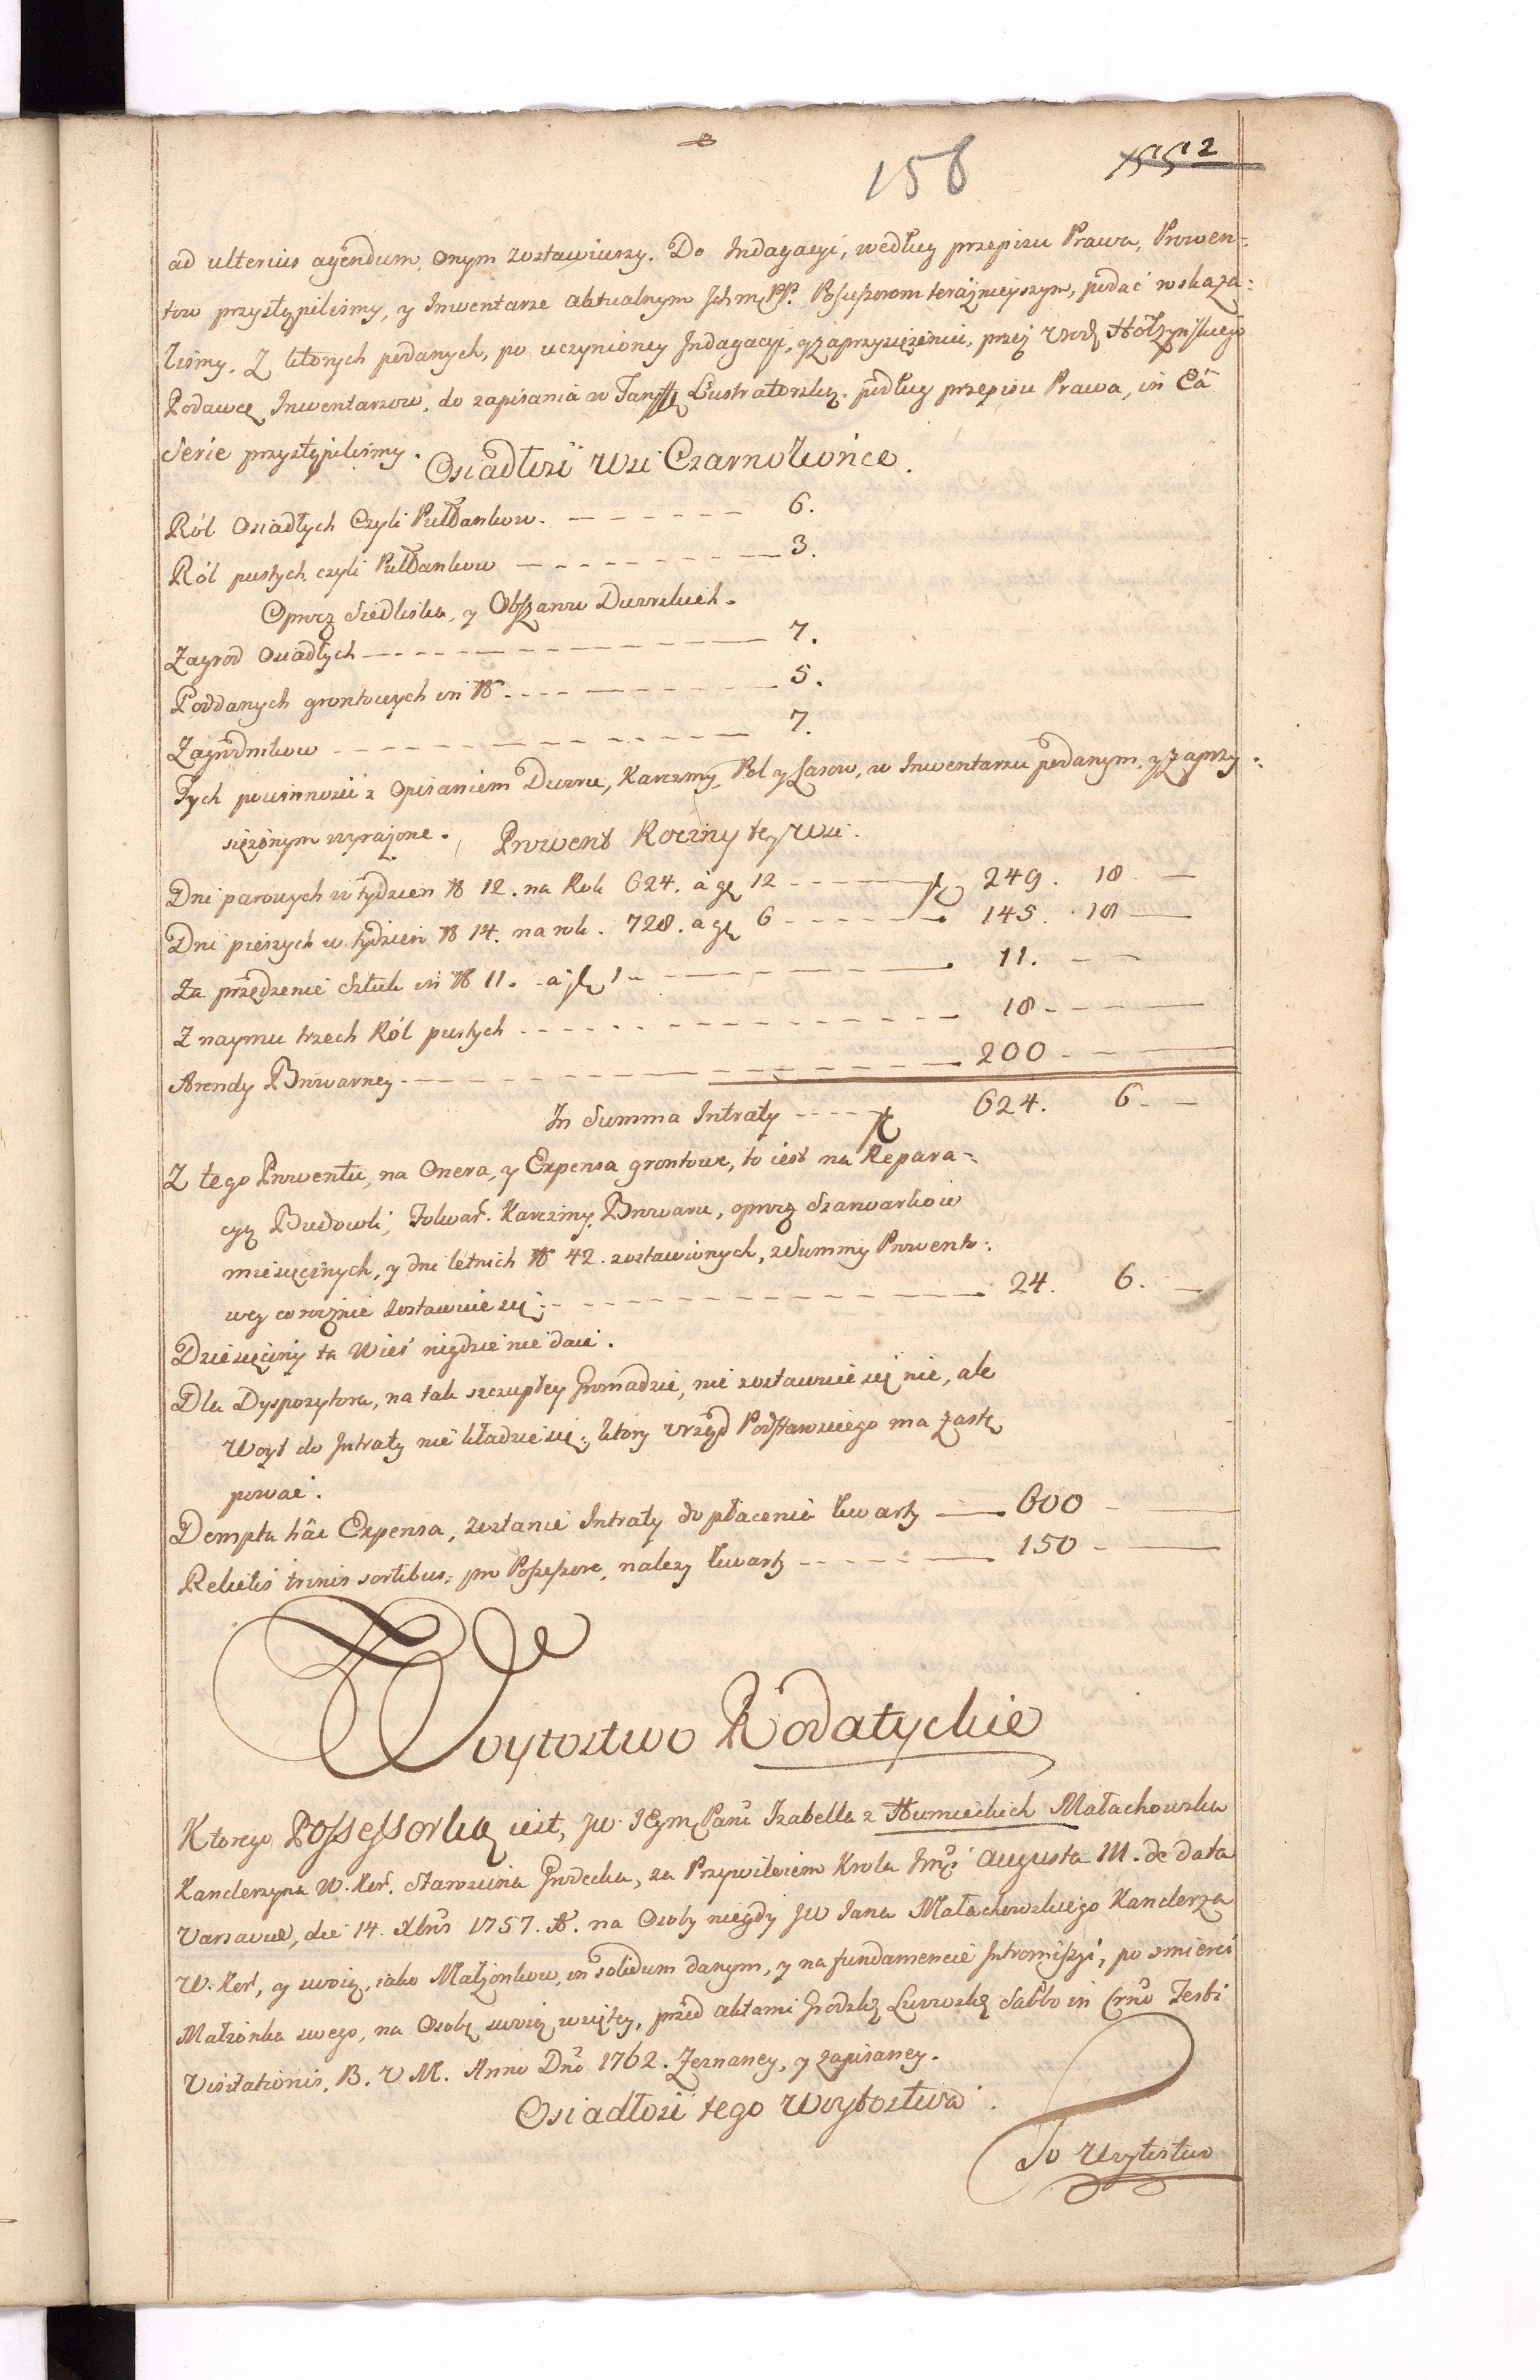 158
1552
ad ulterius agendum onym zostawiwszy. Do Indagacyi, według przepisu Prawa, Prowen-
tow przystąpiliśmy, y Inwentarze aktualnym Ichm PP. Possessorom teraznieyszym, podać wskaza-
liśmy. Z ktorych podanych, po uczynioney Indagacyi, y zaprzysiężeniu, przez Urodz Hołzyńskiego
Podawcę Inwentarzow, do zapisania w Taryffę Lustratorską podług przepisu Prawa, in Eâ
Serie przystąpiliśmy.
Osiadłość wsi Czarnokońce.
Ról Osiadłych Czyli Pułłankow. 6.
Ról pustych czyli Pułłankow 3.
Oprocz Siedliska, y Obszarow Dworskich.
Zagrod Osiadłych 7.
Poddanych grontowych in N 5.
Zagrodnikow 7.
Tych powinności z Opisaniem Dworu, Karczmy, Pol y Lasow, w Inwentarzu podanym, y zaprzy-
siężonym wyrażone.
Prowent Roczny tey Wsi.
Dni parowych w tydzien N 12. na Rok 624. à gr 12 249. 18
Dni pieszych w tydzień N 14. na rok. 728. à gr 6 145. 18
Za przędzenie Sztuk in N 11. a fl 1 11.
Z naymu trzech Ról pustych 18
Arendy Browarney 200
In Summa Intraty 624. 6
Z tego Prowentu, na Onera, y Expensa grontowe, to iest na Repara-
cyę Budowli, Folwar. Karczmy, Browaru, oprocz Szarwarkow
miesięcznych, y dni letnich N 42. zostawionych, z Summy Prowento-
wey corocznie zostawuie się 24. 6.
Dziesięciny ta Wieś nigdzie nie daie.
Dla Dyspozytora, na tak szczupłey Gromadzie, nie zostawuie się nic, ale
Woyt do Intraty nie kładzie się, ktory Urząd Podstarosciego ma zastę
pować.
Dempta hâc Expensa, zostanie Intraty do płacenia kwarty 600
Relictis trinis sortibus, pro Possessore, nalezy kwarty 150
Woytostwo Rodatyckie
Ktorego Possessorką iest, JW JEym Pani Izabella z Humieckich Małachowska
Kanclerzyna W. Kor. Starościna Grodecka, za Przywileiem Krola Jmci Augusta III. de data
Varsaviæ, die 14. Xbris 1757. A. na Osoby niegdy JW Jana Małachowskiego Kanclerza
W. Kor, y swoię, iako Małżonkow, in solidum danym, y na fundamencie Intromissyi, po smierci
Małżonka swego, na Osobę swoię wziętey, przed aktami Grodzk Lwowsk Sabbo in Crno Festi
Visitationis, B. V. M. Anno Dni 1762. Zeznaney, y zapisaney.
Osiadłość tego Woytostwa.
To Woytostwo